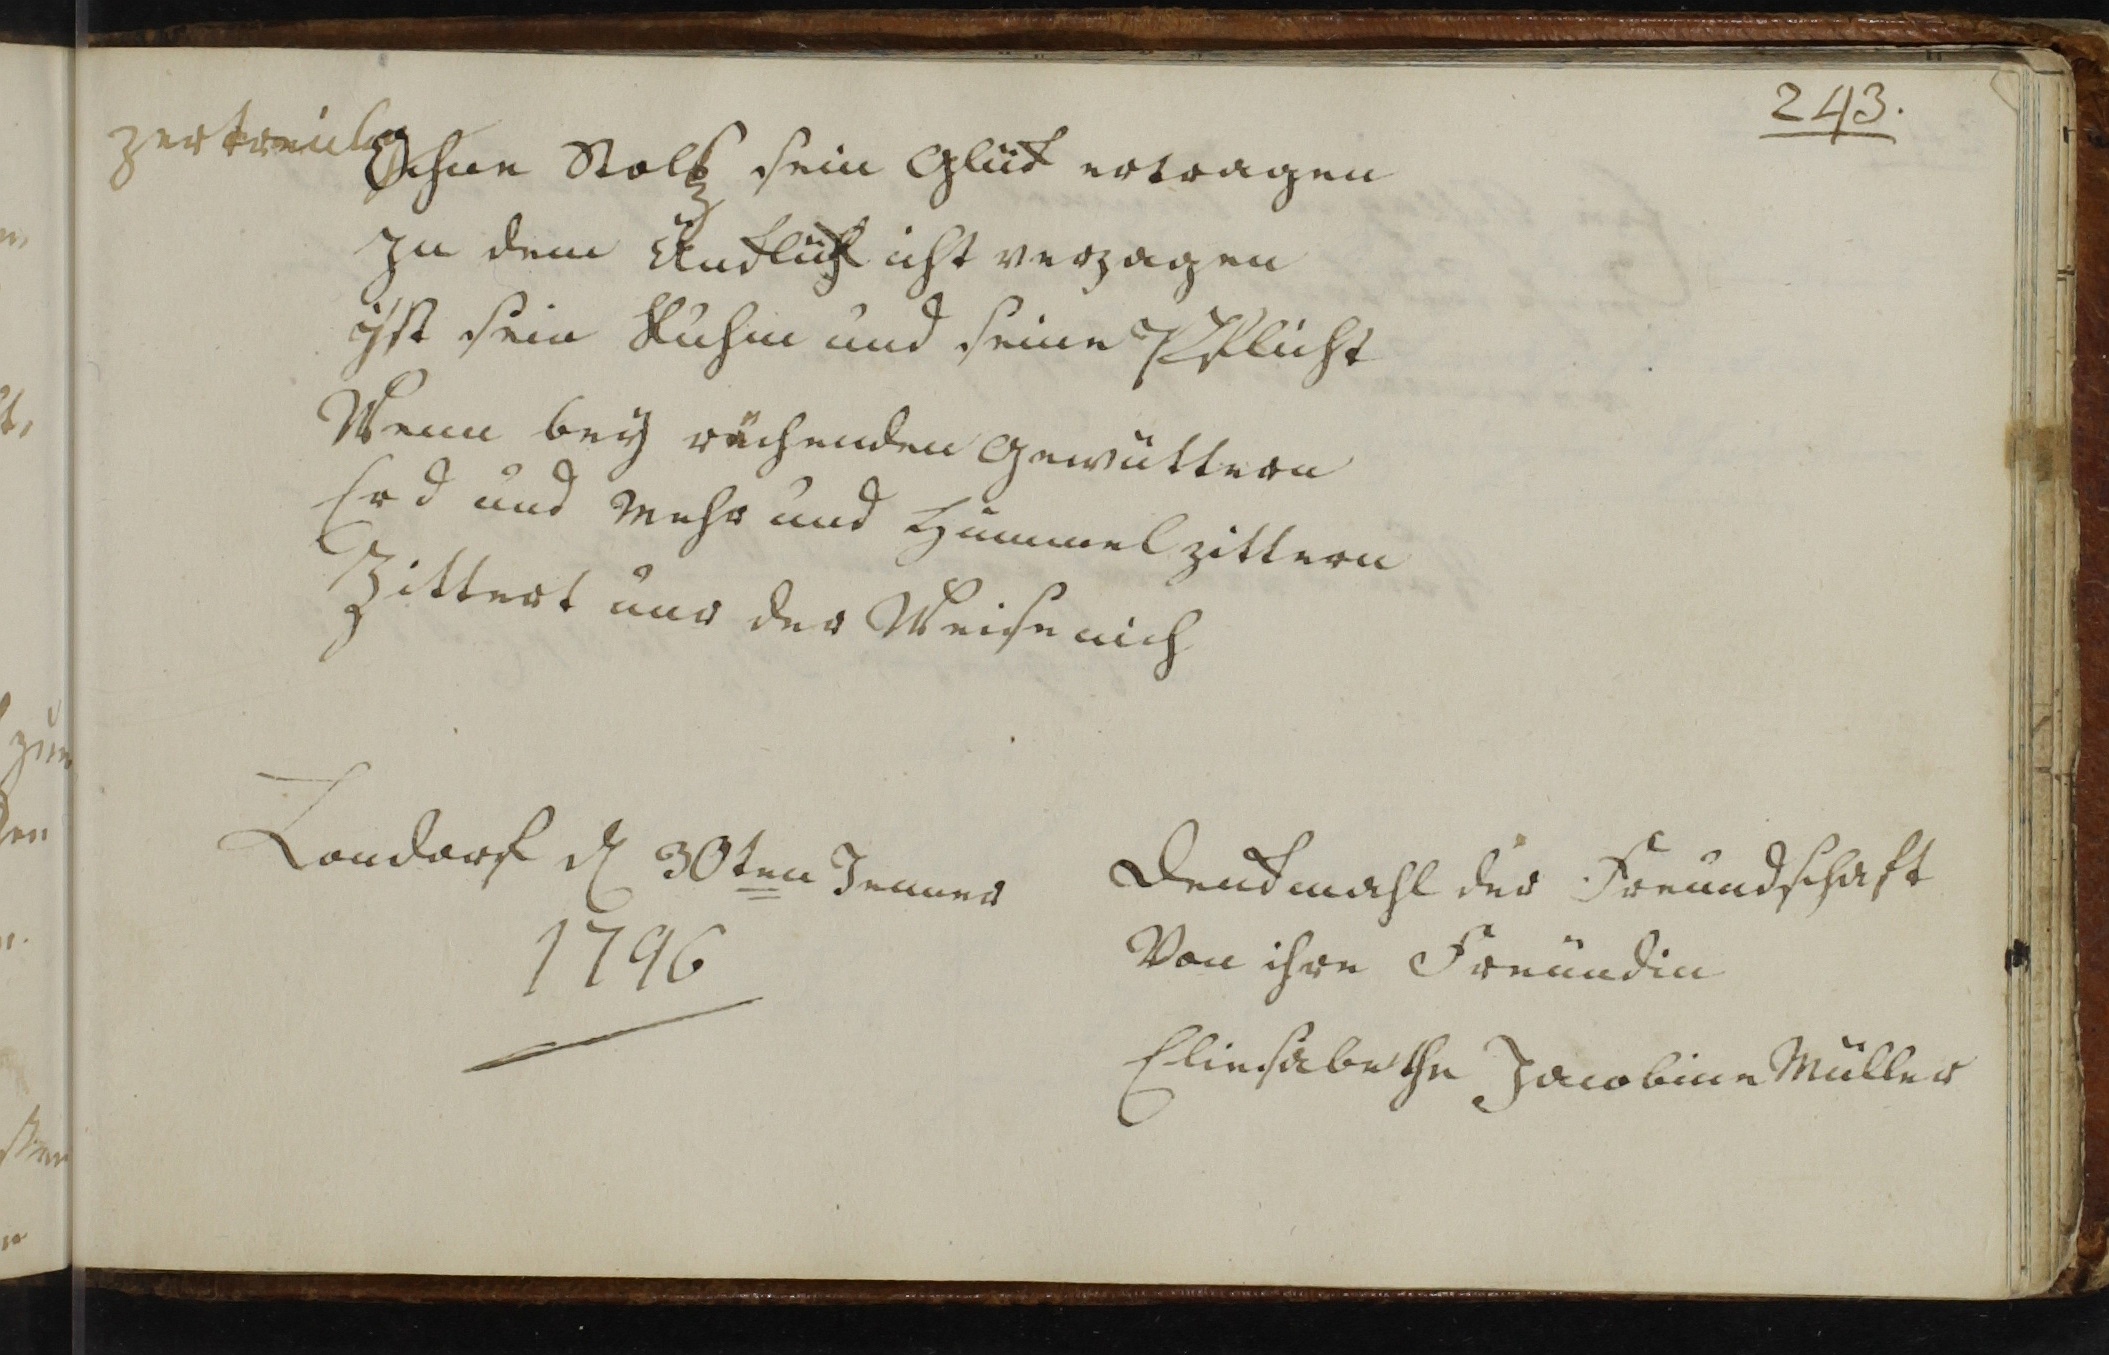 243.
Ohne Stoltz sein Glük ertragen
In dem Unklük icht verzagen
ist sein Ruhm und seine Pflicht
Wenn bey rächenden Gewüttern
Erd und Mehr und Hümmel zittern
Zittert nur der Weise nich
Londorf d 30ten Jenner
1796
Denkmahl der Freundschaft
Von ihre Freundin
Eliesabethe Jacobine Müller